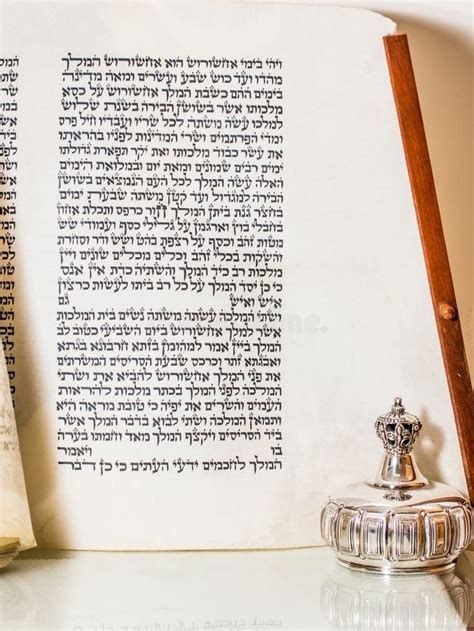 ויהי בימי אחשורוש הוא אחשורוש המלך
מהדו ועד כוש שבע ועשרים ומאה מדינה
בימים ההם כשבת המלך אחשורוש על כסא
מלכותו אשר בשושן הבירה בשנת שלוש
למלכו עשה משתה לכל שריו ועבדיו חיל פרס
ומדי הפרתמים ושרי המדינות לפניו בהראתו
את עשר כבוד מלכותו ואת יקר תפארת גדולתו
ימים רבים שמונים ומאת יום ובמלואת הימים
האלה עשה המלך לכל העם הנמצאים בשושן
הבירה למגדול ועד קטן משתה שבעת ימים
בחצר גנת ביתן המלך חור כרפס ותכלת אחוז
בחבלי בוץ וארגמן על גלילי כסף ועמודי שש
מטות זהב וכסף על רצפת בהט ושש ודר וסחרת
והשקות בכלי זהב וכלים מכלים שונים ויין
מלכות רב כיד המלך והשתיה כדת אין אנס
כי כן יסד המלך על כל רב ביתו לעשות כרצון
איש ואיש גם
ושתי המלכה עשתה משתה נשים בית המלכות
אשר למלך אחשורוש ביום השביעי כטוב לב
המלך ביין אמר למהומן בזתא חרבונא בגתא
ואבגתא זתר וכרכס שבעת הסריסים המשרתים
את פני המלך אחשורוש להביא את ושתי
המלכה לפני המלך בכתר מלכות להראות
העמים והשרים את יפיה כי טובת מראה היא
ותמאן המלכה ושתי לבוא בדבר המלך אשר
ביד הסריסים ויקצף המלך מאד וחמתו בערה
בו ויאמר
המלך לחכמים ידעי העתים כי כן דבר